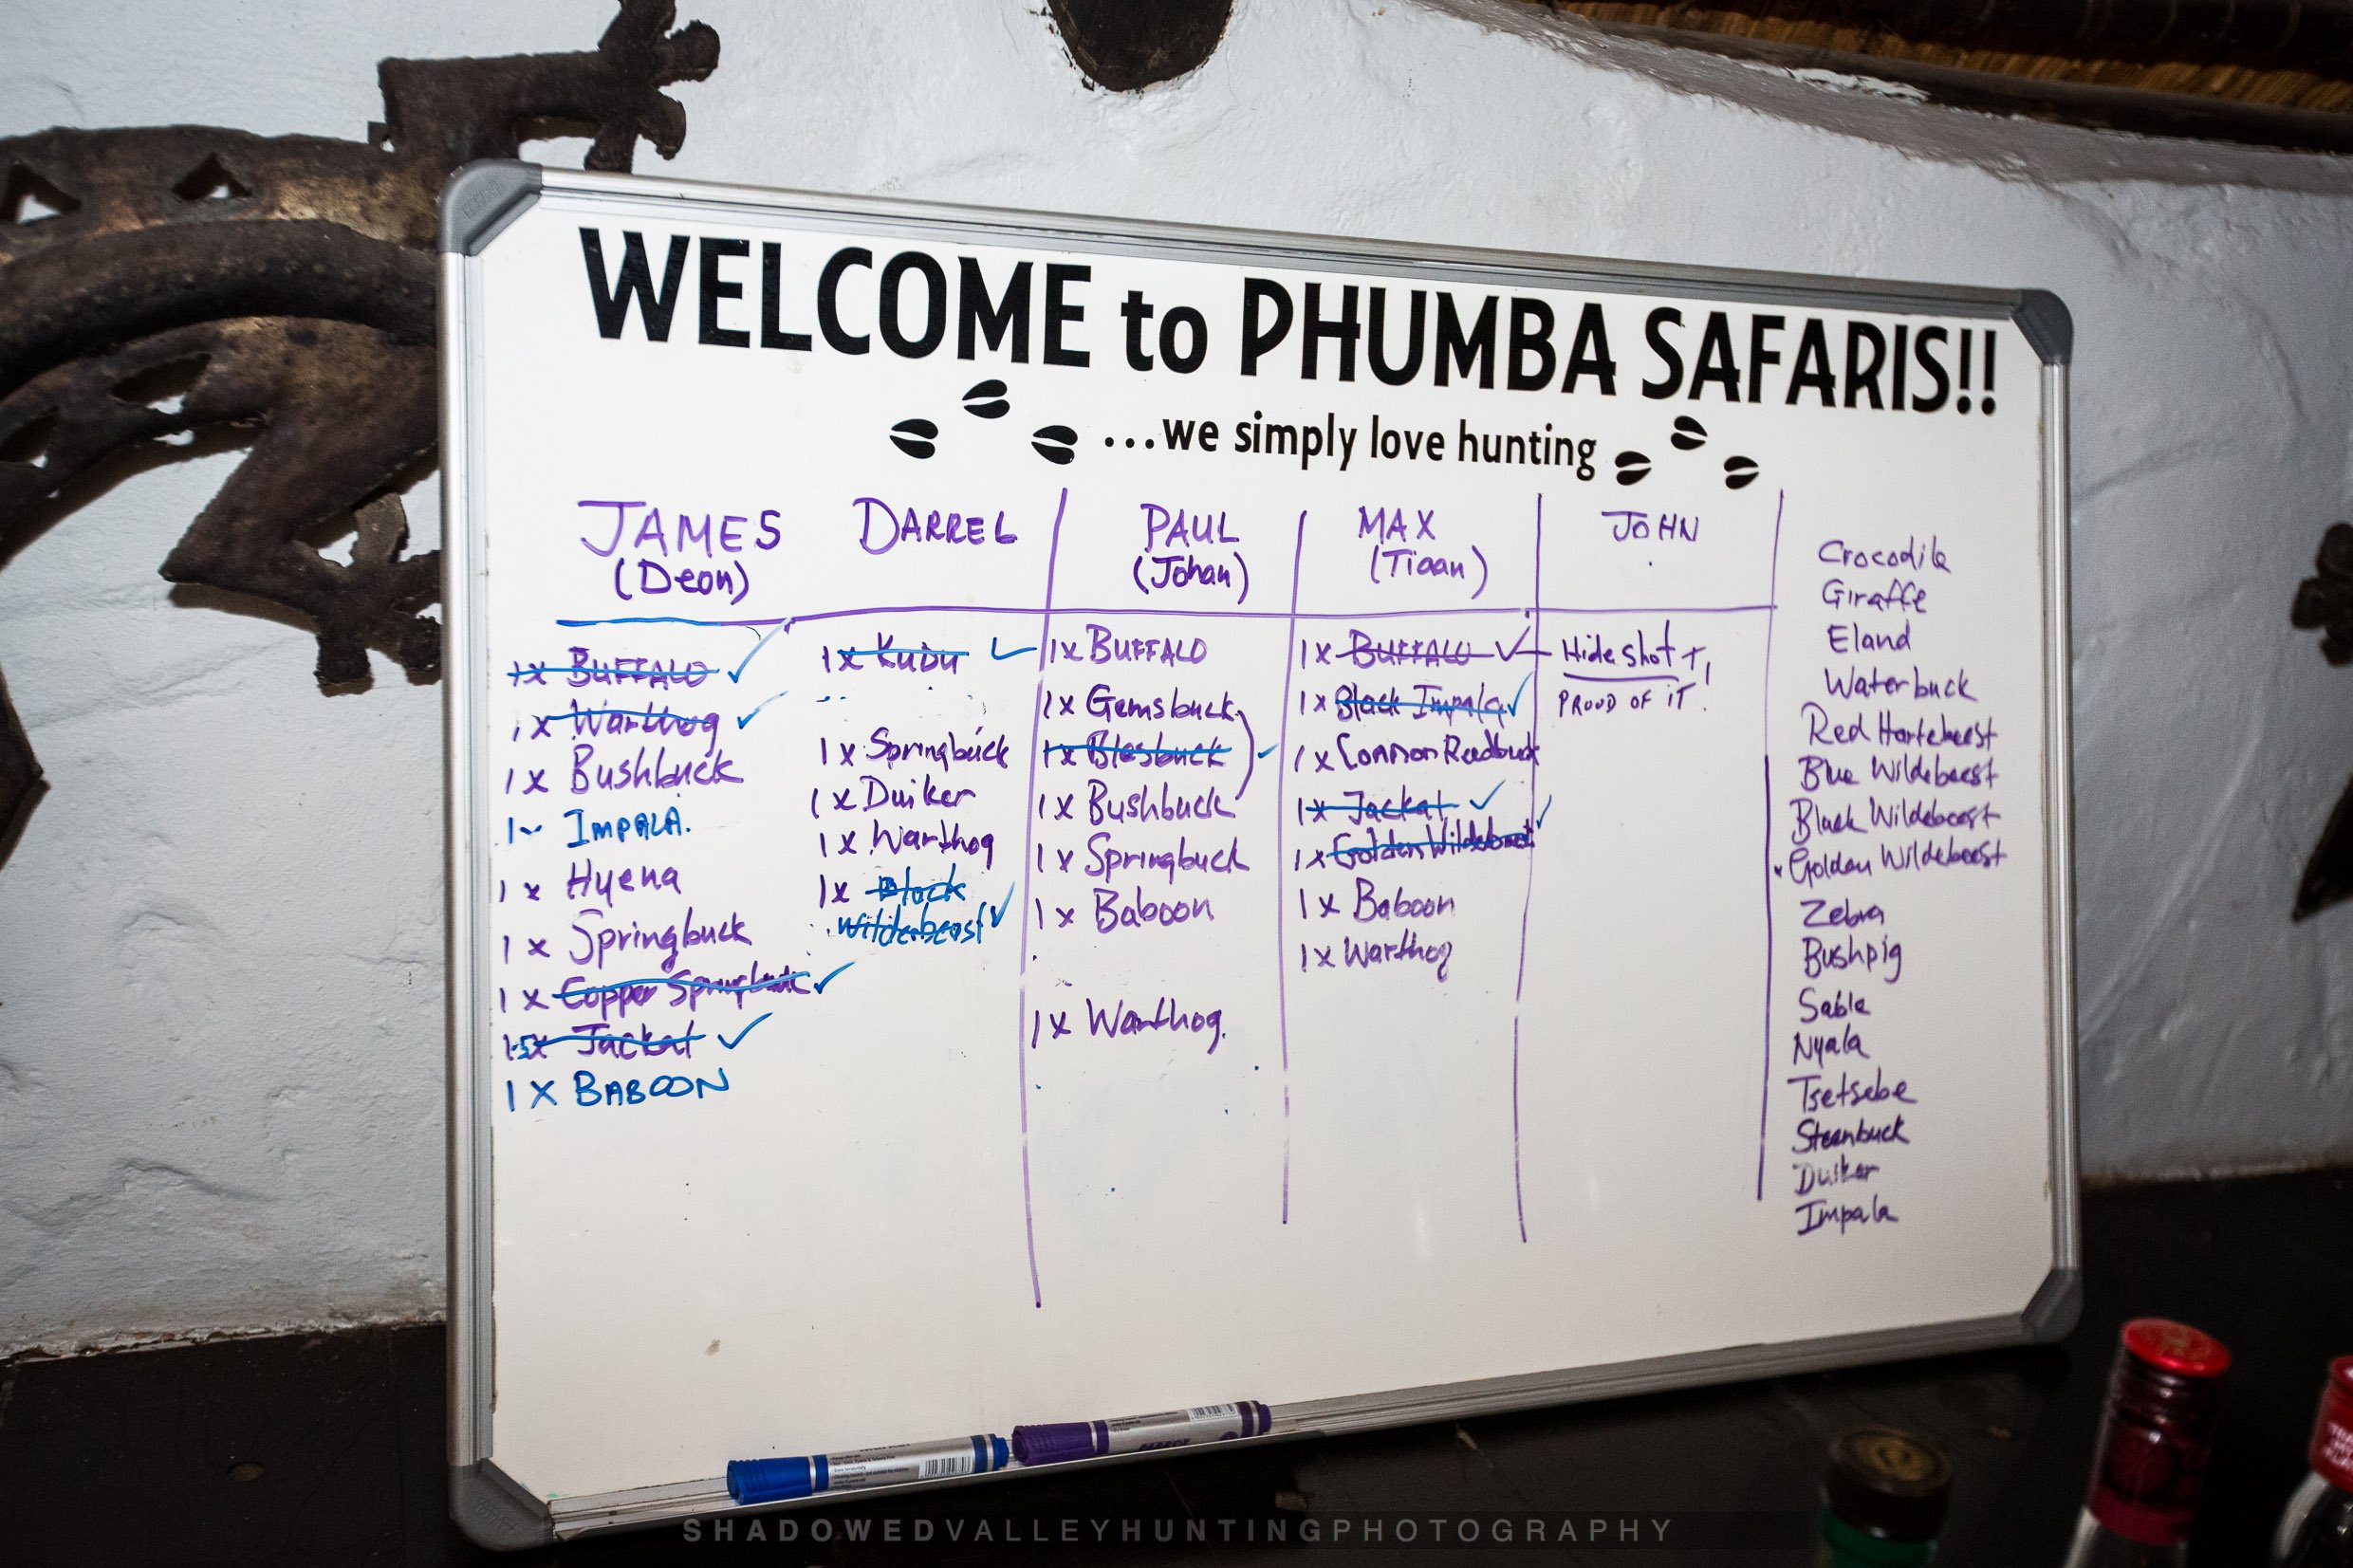 WELCOME to PHUMBA SAFARIS!!
...we simply love hunting
JAMES
(Deon)
1x BUFFALO
1x Warthog
1x Bushbuck
1~ IMPALA.
1x Hyena
1x Springbuck
1x Copper Springbuck
Jackal
1X BABOON
DARREL
1x Kudu
1x Springbuck
1x Duiker
1x Warthog
1x Black
Wildebeest
PAUL
(Johan)
1x BUFFALO
1x Gemsbuck
1x Blesbuck
1x Bushbuck
1x Springbuck
1x Baboon
1x Warthog.
MAX
(Tiaan)
1x BUFFALO
1x Black Impala
1x Common Reedbuck
1x Jackal
1x Golden Wildebeest
1x Baboon
1x Warthog
JOHN
Hide shot
PROUD OF IT!
Crocodile
Giraffe
Eland
Waterbuck
Red Hartebeest
Blue Wildebeest
Black Wildebeest
Golden Wildebeest
Zebra
Bushpig
Sable
Nyala
Tsetsebe
Steenbuck
Duiker
Impala
SHADOWEDVALLEYHUNTINGPHOTOGRAPHY